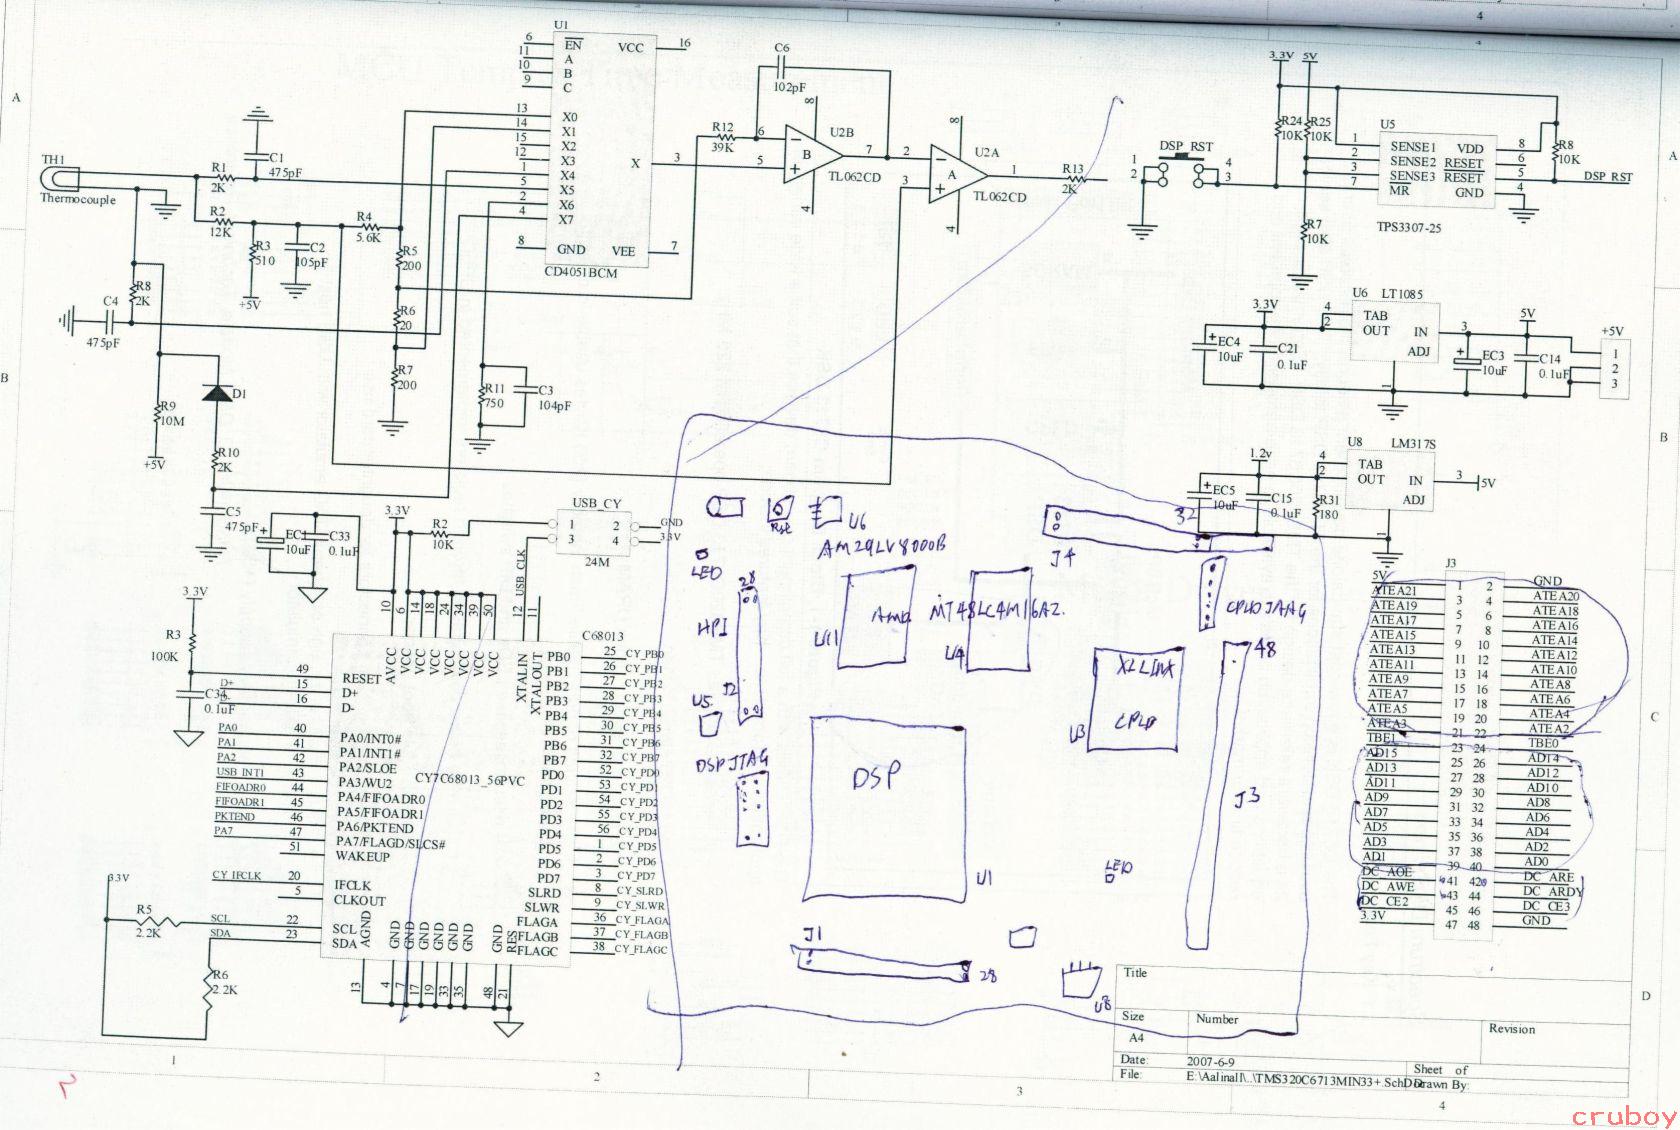 4
4
A
B
TH1
Thermocouple
C1
475pF
R1
2K
R2
12K
R3
510
+5V
C2
105pF
R4
5.6K
R5
200
R6
20
R7
200
R8
2K
C4
475pF
R9
10M
+5V
D1
R10
2K
C5
475pF
R11
750
C3
104pF
U1
6 EN VCC 16
11 A
10 B
9 C
13 X0
14 X1
15 X2
12 X3
1 X4
5 X5
2 X6
4 X7
X 3
8 GND VEE 7
CD4051BCM
C6
102pF
R12
39K
6
5
8
U2B
B
7
4
TL062CD
2
3
8
U2A
A
1
4
TL062CD
R13
2K
3.3V 5V
R24
10K
R25
10K
R7
10K
DSP RST
1 4
2 3
U5
1 SENSE1 VDD 8
2 SENSE2 RESET 6
3 SENSE3 RESET 5
7 MR GND 4
TPS3307-25
R8
10K
DSP RST
A
U6 LT1085
3.3V
4 TAB
2 OUT IN 3
ADJ
1
EC4
10uF
C21
0.1uF
5V
EC3
10uF
C14
0.1uF
+5V
1
2
3
U8 LM317S
1.2v
4 TAB
2 OUT IN 3 5V
ADJ
1
EC5
10uF
C15
0.1uF
R31
180
B
3.3V
R2
10K
USB CY
1 2 GND
3 4 3.3V
24M
USB CLK
EC
10uF
C33
0.1uF
3.3V
R3
100K
C34
0.1uF
C68013
10 6 14 18 24 34 39 50 12 11
AVCC VCC VCC VCC VCC VCC VCC VCC XTALIN XTALOUT
49 RESET
D+ 15 D+
16 D-
PA0 40 PA0/INT0#
PA1 41 PA1/INT1#
PA2 42 PA2/SLOE
USB INT1 43 PA3/WU2
FIFOADR0 44 PA4/FIFOADR0
FIFOADR1 45 PA5/FIFOADR1
PKTEND 46 PA6/PKTEND
PA7 47 PA7/FLAGD/SLCS#
51 WAKEUP
CY IFCLK 20 IFCLK
5 CLKOUT
SCL 22 SCL
SDA 23 SDA
CY7C68013_56PVC
PB0 25 CY_PB0
PB1 26 CY_PB1
PB2 27 CY_PB2
PB3 28 CY_PB3
PB4 29 CY_PB4
PB5 30 CY_PB5
PB6 31 CY_PB6
PB7 32 CY_PB7
PD0 52 CY_PD0
PD1 53 CY_PD1
PD2 54 CY_PD2
PD3 55 CY_PD3
PD4 56 CY_PD4
PD5 1 CY_PD5
PD6 2 CY_PD6
PD7 3 CY_PD7
SLRD 8 CY_SLRD
SLWR 9 CY_SLWR
FLAGA 36 CY_FLAGA
FLAGB 37 CY_FLAGB
FLAGC 38 CY_FLAGC
AGND GND GND GND GND GND GND GND RES
13 4 7 17 19 33 35 48 21
3.3V
R5
2.2K
R6
2.2K
Rst
U6
LED
AM29LV8000B
28
HPI
J2
U5
DSP JTAG
U11
Amd
MT48LC4M16A2
U4
32
J4
CPLD JTAG
48
XLLINX
CPLD
U3
J3
DSP
U1
LED
J1
28
U8
J3
5V 1 2 GND
ATEA21 3 4 ATEA20
ATEA19 5 6 ATEA18
ATEA17 7 8 ATEA16
ATEA15 9 10 ATEA14
ATEA13 11 12 ATEA12
ATEA11 13 14 ATEA10
ATEA9 15 16 ATEA8
ATEA7 17 18 ATEA6
ATEA5 19 20 ATEA4
ATEA3 21 22 ATEA2
TBE1 23 24 TBE0
AD15 25 26 AD14
AD13 27 28 AD12
AD11 29 30 AD10
AD9 31 32 AD8
AD7 33 34 AD6
AD5 35 36 AD4
AD3 37 38 AD2
AD1 39 40 AD0
DC AOE 41 42 DC ARE
DC AWE 43 44 DC ARDY
DC CE2 45 46 DC CE3
3.3V 47 48 GND
C
D
Title
Size
A4
Number
Revision
Date: 2007-6-9
Sheet of
File: E:\Aalinall\..\TMS320C6713MIN33+.SchDoc
Drawn By:
1
2
3
4
2
cruboy